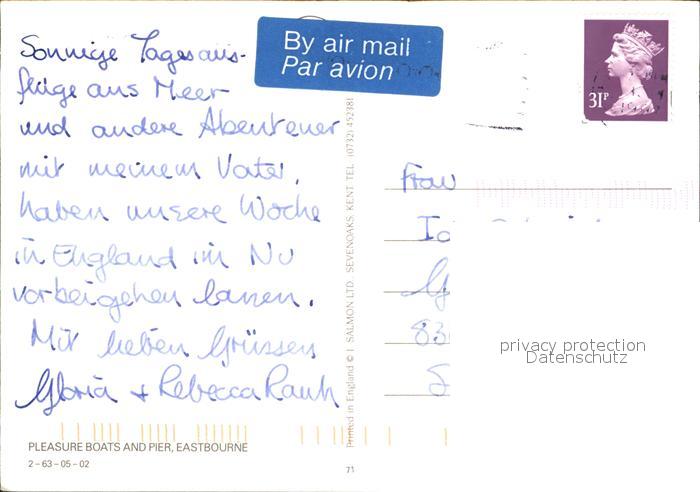 Sonnige Tagesaus-
flüge ans Meer
und andere Abenteuer
mit meinem Vater,
haben unsere Woche
in England im Nu
vorbeigehen lassen.
Mit lieben Grüssen
Gloria + Rebecca Rauh
PLEASURE BOATS AND PIER, EASTBOURNE
2 – 63 – 05 – 02
By air mail
Par avion
Printed in England © J. SALMON LTD. SEVENOAKS. KENT. TEL. (0732) 452381
31P
Frau
83
privacy protection
Datenschutz